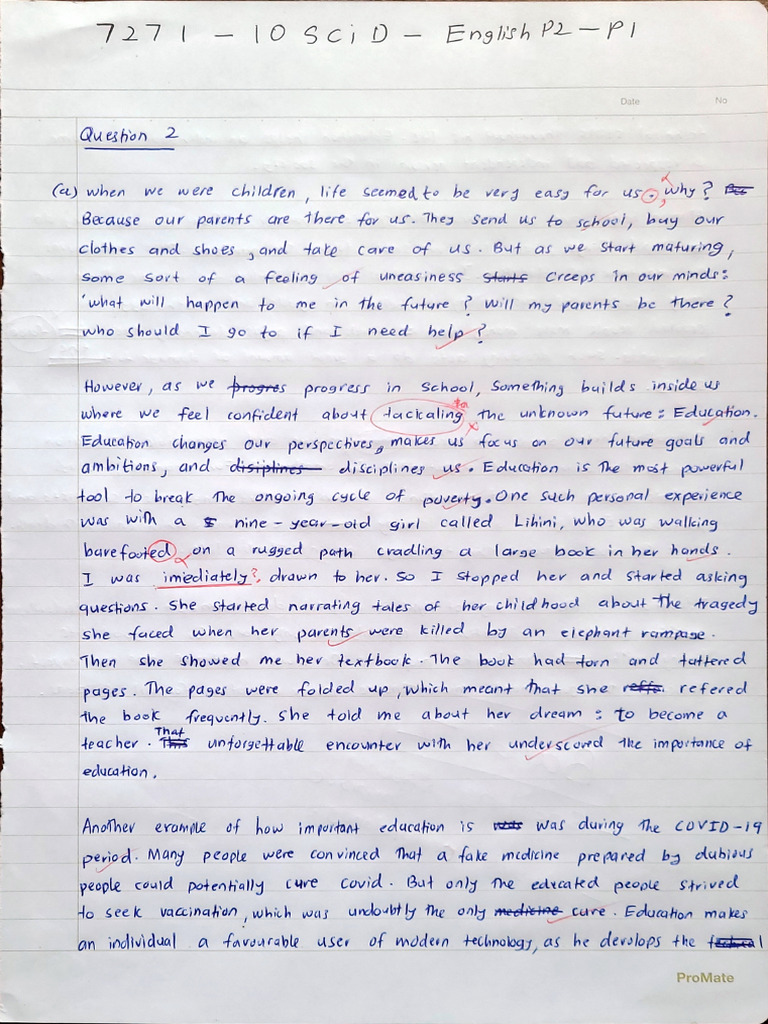 7271 - 10 SCi D - English P2 - P1
Date No
Question 2
(a) when we were children, life seemed to be very easy for us., why?
Because our parents are there for us. They send us to school, buy our
clothes and shoes, and take care of us. But as we start maturing,
some sort of a feeling of uneasiness starts creeps in our minds:
'what will happen to me in the future? Will my parents be there?
who should I go to if I need help?
However, as we progres progress in school, something builds inside us
where we feel confident about tackaling the unknown future: Education.
Education changes our perspectives, makes us focus on our future goals and
ambitions, and disiplines disciplines us. Education is the most powerful
tool to break the ongoing cycle of poverty. One such personal experience
was with a nine-year-old girl called Lihini, who was walking
barefooted on a rugged path cradling a large book in her hands.
I was imiediately?, drawn to her. So I stopped her and started asking
questions. She started narrating tales of her childhood about the tragedy
she faced when her parents were killed by an elephant rampage.
Then she showed me her textbook. The book had torn and tattered
pages. The pages were folded up, which meant that she refered
the book frequently. She told me about her dream: to become a
teacher. This That unforgettable encounter with her underscored the importance of
education.
Another example of how important education is was was during the COVID-19
period. Many people were convinced that a fake medicine prepared by dubious
people could potentially cure covid. But only the educated people strived
to seek vaccination, which was undoubtly the only medicine cure. Education makes
an individual a favourable user of modern technology, as he develops the
ProMate